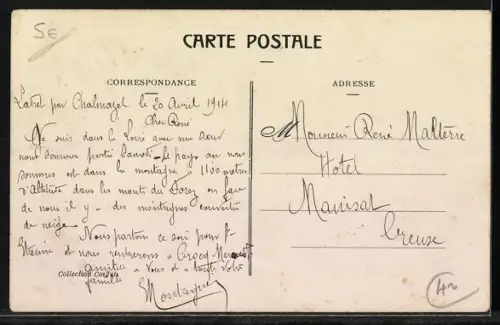 5E
CARTE POSTALE
CORRESPONDANCE
ADRESSE
par Chalmazel le 20 Avril 1914
Cher René
Je suis dans la Loire avec ma sœur
nous sommes partis Samedi le pays ou nous
sommes est dans la montagne 1100 metres
d'altitude dans les monts du Forez en face
de nous il y a des montagnes couvertes
de neige
Nous partons ce soir pour St
Etienne et nous rentrerons a Crocq Mercredi
amitiés a vous et a toute votre
famille
Collection
M Monsieur René Malterre
Hotel
Mainsat
Creuse
42